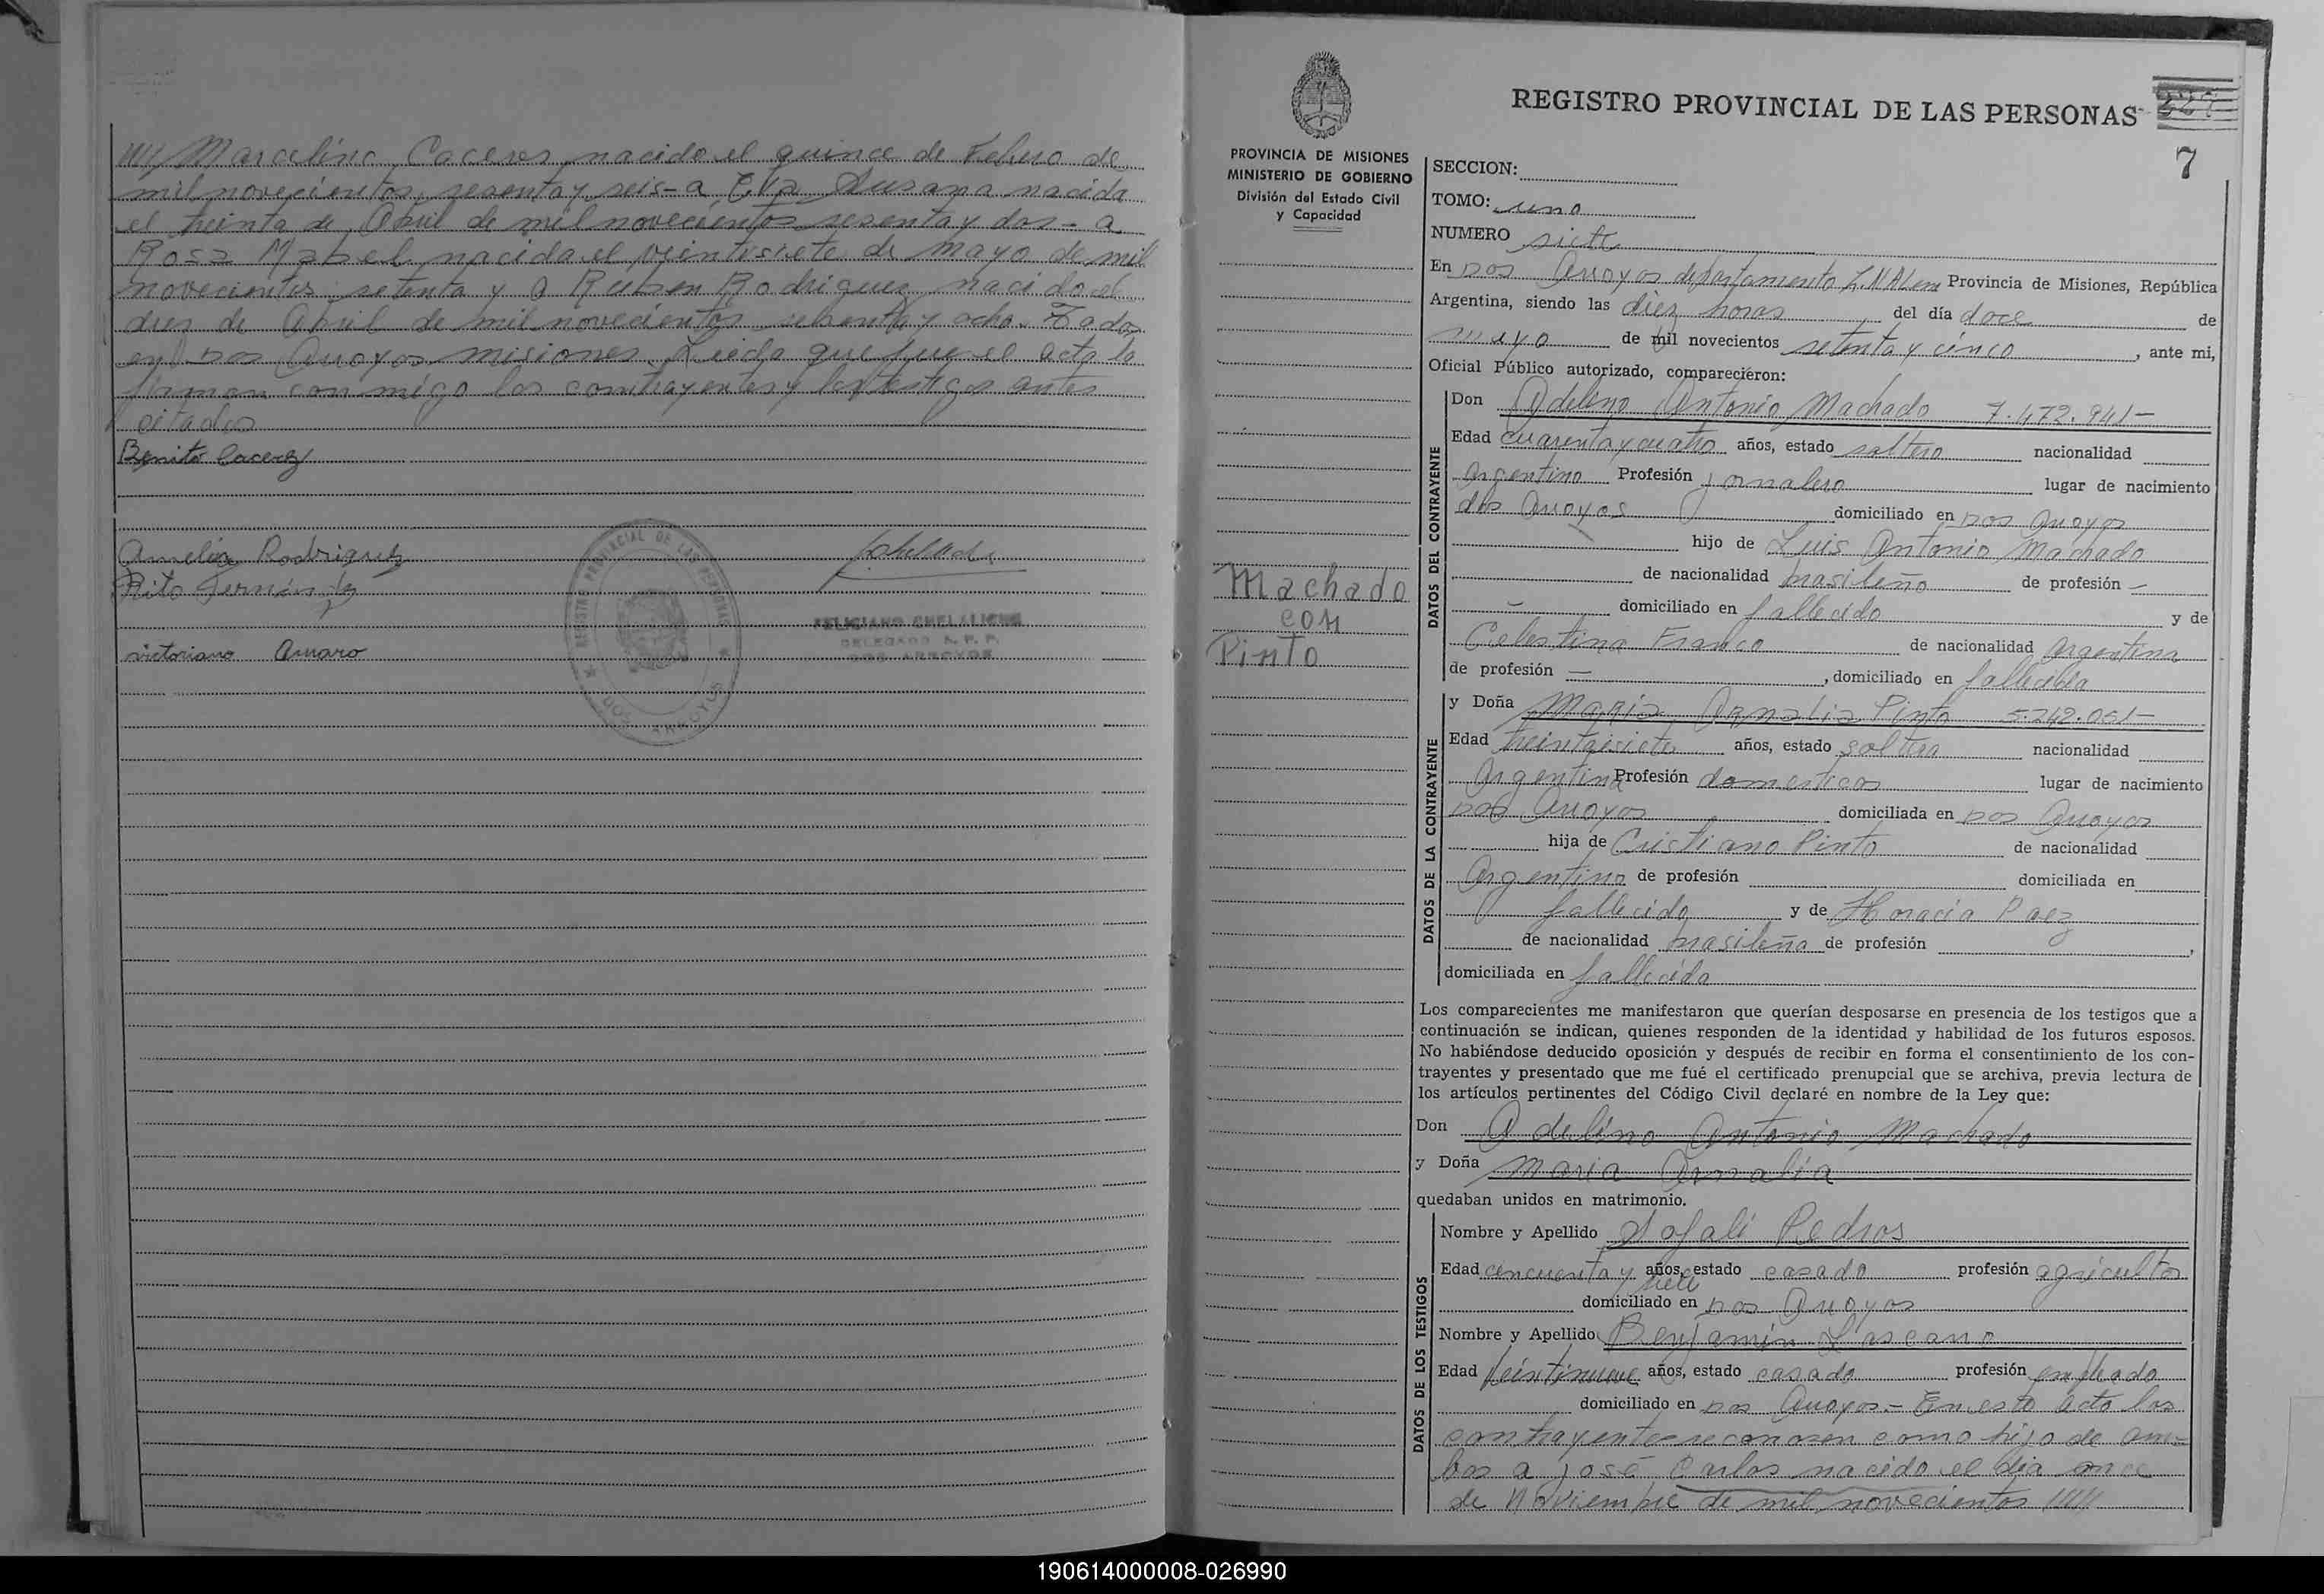 //// Marcelino Caceres nacido el quince de Febrero de
mil novecientos sesenta y seis - a Eva Susana nacida
el treinta de Abril de mil novecientos sesenta y dos - a
Rosa Mabel nacida el veintisiete de Mayo de mil
novecientos setenta y a Ruben Rodriguez nacido el
dies de Abril de mil novecientos sesenta y ocho. Todos
en Dos Arroyos misiones. Leida que fue el acta la
firman conmigo los contrayentes y los testigos antes
citados
Benito Cacerez
Amelia Rodriguez
Rito Fernández
victoriano Amaro
REGISTRO PROVINCIAL DE LAS PERSONAS
DOS ARROYOS
FELICIANO CHELALICHE
DELEGADO R. P. P.
DOS ARROYOS
REGISTRO PROVINCIAL DE LAS PERSONAS
227
7
PROVINCIA DE MISIONES
MINISTERIO DE GOBIERNO
División del Estado Civil
y Capacidad
Machado
con
Pinto
SECCION:
TOMO: uno
NUMERO siete
En Dos Arroyos departamento L.N.Alem Provincia de Misiones, República
Argentina, siendo las diez horas del día doce de
mayo de mil novecientos setenta y cinco, ante mi,
Oficial Público autorizado, comparecieron:
DATOS DEL CONTRAYENTE
Don Adelino Antonio Machado 7.472.941-
Edad cuarenta y cuatro años, estado soltero nacionalidad
argentino Profesión jornalero lugar de nacimiento
dos Arroyos domiciliado en Dos Arroyos
hijo de Luis Antonio Machado
de nacionalidad brasileño de profesión -
- domiciliado en fallecido y de
Celestina Franco de nacionalidad Argentina
de profesión —, domiciliado en fallecida
DATOS DE LA CONTRAYENTE
y Doña Maria Arnalia Pinto 5.242.061-
Edad treintaisiete años, estado soltera nacionalidad
Argentina Profesión domesticos lugar de nacimiento
Dos Arroyos domiciliada en Dos Arroyos
hija de Cristiano Pinto de nacionalidad
Argentino de profesión domiciliada en
fallecido y de Horacia Paez
de nacionalidad brasileña de profesión ,
domiciliada en fallecida
Los comparecientes me manifestaron que querían desposarse en presencia de los testigos que a
continuación se indican, quienes responden de la identidad y habilidad de los futuros esposos.
No habiéndose deducido oposición y después de recibir en forma el consentimiento de los con-
trayentes y presentado que me fué el certificado prenupcial que se archiva, previa lectura de
los artículos pertinentes del Código Civil declaré en nombre de la Ley que:
Don Adelino Antonio Machado
y Doña Maria Arnalia
quedaban unidos en matrimonio.
DATOS DE LOS TESTIGOS
Nombre y Apellido Sofali Pedros
Edad cincuenta y siete años, estado casado profesión agricultor
domiciliado en Dos Arroyos
Nombre y Apellido Benjamin Lascano
Edad veintinueve años, estado casado profesión empleado
domiciliado en Dos Arroyos - En este acto los
contrayentes reconosen como hijo de am-
bos a José Carlos nacido el dia once
de Noviembre de mil novecientos /////
190614000008-026990